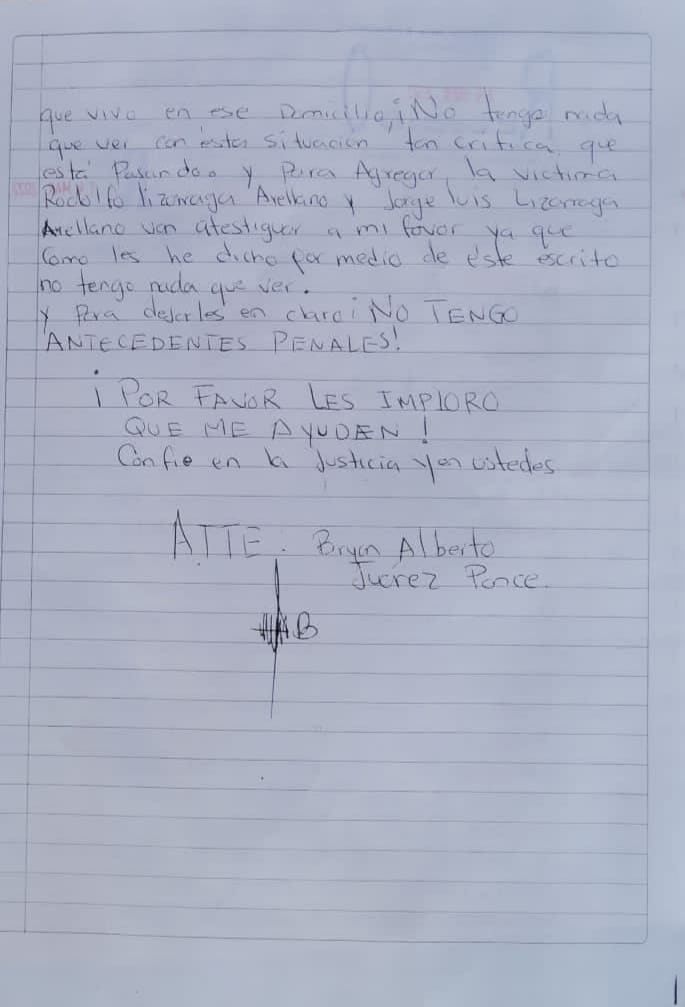 que vivo en ese Domicilio, ¡No tengo nada
que ver con esta situación tan critica que
está Pasando. y Para Agregar, la victima
Rodolfo lizarraga Arellano y Jorge luis Lizarraga
Arellano van atestiguar a mi favor ya que
Como les he dicho por medio de éste escrito
no tengo nada que ver.
y Para dejarles en claro ¡NO TENGO
ANTECEDENTES PENALES!
¡POR FAVOR LES IMPLORO
QUE ME AYUDEN!
Confio en la Justicia y en ustedes
ATTE. Bryan Alberto
Juarez Ponce.
B